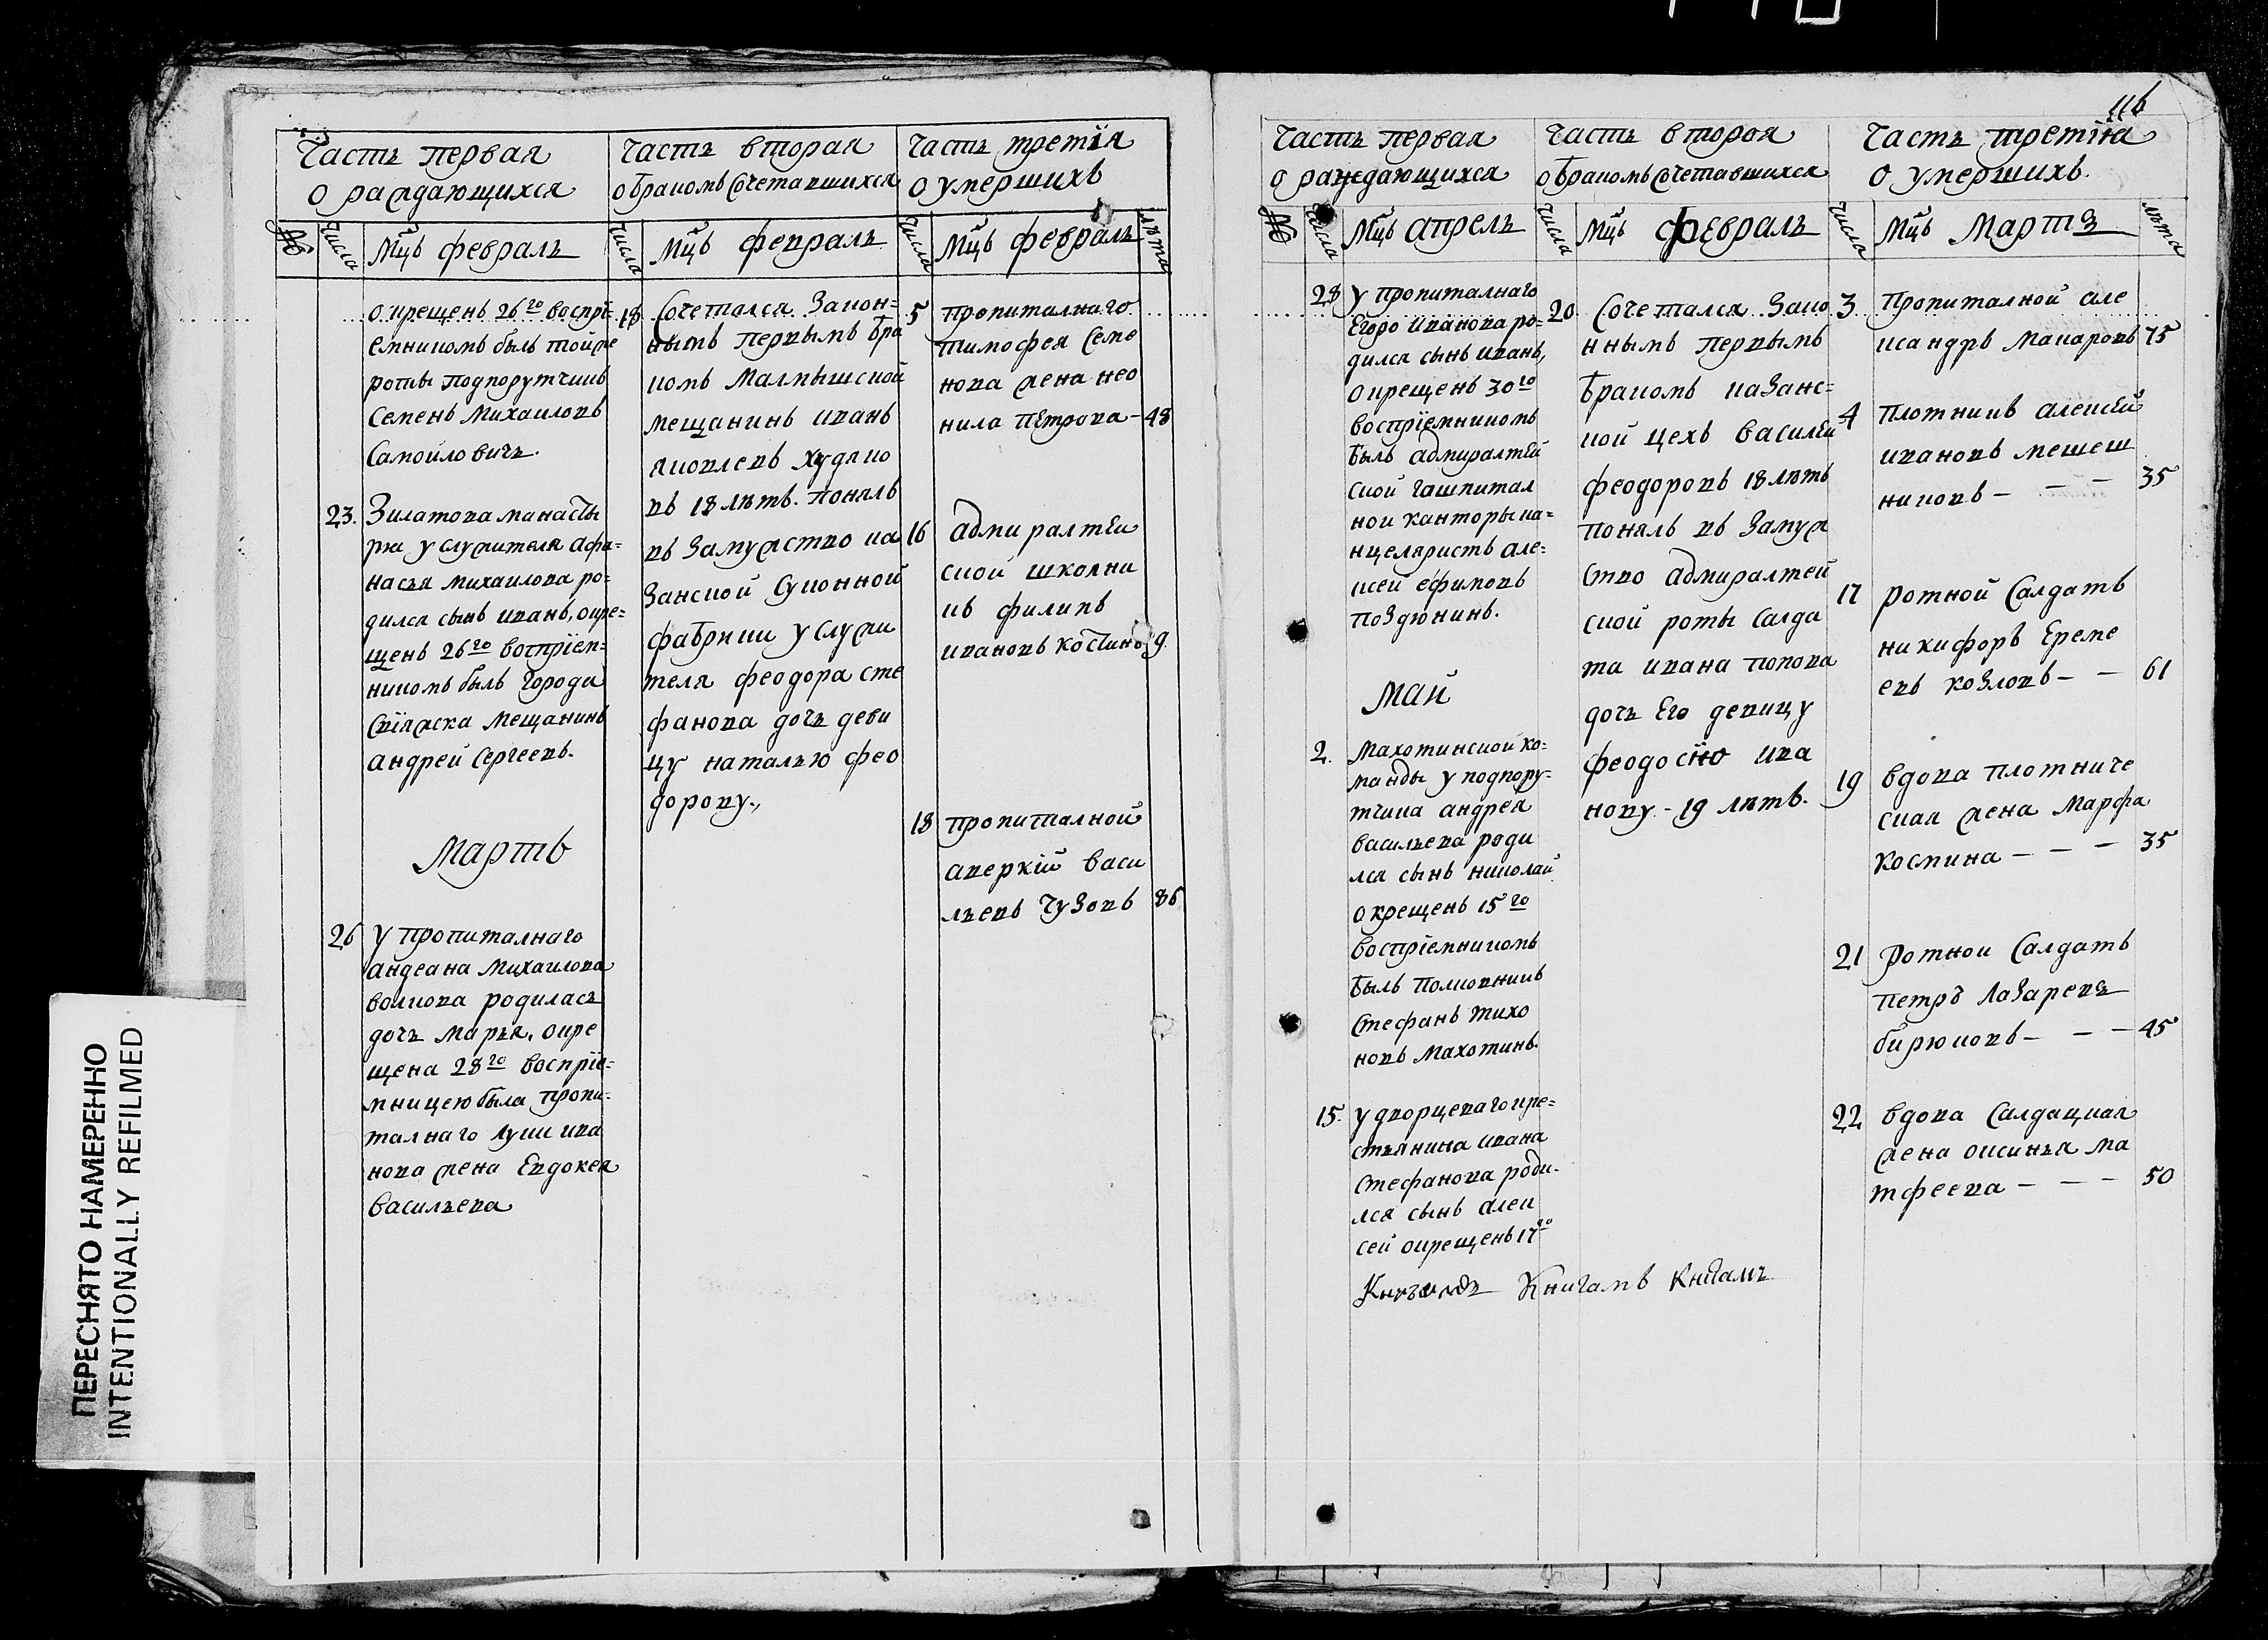 116
Часть первая
о раждающихся
№
числа
Мцъ февраль
окрещенъ 26го воспрі=
емникомъ былъ тойже
роты подпорутчикъ
Семенъ Михаиловъ
Самойловичь.
23. Зилатова манасты
ря у служителя афа=
насья михаилова ро=
дился сынъ иванъ, окре=
щенъ 26го воспріем=
никомъ былъ города
Свіяжска мещанинъ
андрей Сергеевъ.
Мартъ
26 у пропиталнаго
андеана михаилова
волкова родилась
дочь марья, окре
щена 28го воспріе=
мницею была пропи=
талнаго луки ива
нова жена Евдокея
васильева
Часть вторая
о бракомъ Сочетавшихся
числа
Мцъ февраль
18 Сочетался Закон=
нымъ первымъ бра
комъ Малмышской
мещанинъ иванъ
яковлевъ худяко
въ 18 лѣтъ. понялъ
въ Замужство ка
Занской Суконной
фабрики у служи
теля феодора сте
фанова дочь деви
цу наталью фео
дорову.,
Часть третія
о умершихъ
числа
Мцъ февраль
лѣта
5 пропиталнаго
тимофея Семе
нова жена нео
нила Петрова - 48
16 адмиралтей
ской школни
къ филипъ
ивановъ костино 9
18 пропиталной
аверкій васи
льевъ Чузовъ 86
Часть первая
о раждающихся
№
числа
Мцъ апрель
28 у пропиталнаго
Егоро иванова ро=
дился сынъ иванъ,
окрещенъ 30го
воспріемникомъ
былъ адмиралтей
ской гашпитал
ной канторы ка=
нцеляристъ але=
ксей ефимовъ
поздюнинъ.
Май
2. махотинской ко=
манды у подпору=
тчика андрея
васильева роди
лся сынъ николай
окрещенъ 15го
воспріемникомъ
былъ полковникъ
Стефанъ тихо
новъ махотинъ.
15. у дворцеваго кре=
стьянина ивана
стефанова роди-
лся сынъ алек
сей окрещенъ 17го
Часть вторая
о бракомъ сочетавшихся
числа
Мцъ февраль
20 Сочетался Зако
ннымъ первымъ
бракомъ каЗанс=
кой цехъ василей
феодоровъ 18 лѣтъ
понялъ въ Замуж
ство адмиралтей
ской роты салда
та ивана попова
дочь Его девицу
феодосію ива
нову - 19 лѣтъ.
Часть третіа
о умершихъ.
числа
Мцъ Мартъ
лѣта
3 пропиталной але
ксандръ макаровъ 75
4 плотникъ алексей
ивановъ мешеш
никовъ - - - 35
17 ротной Салдатъ
никифоръ Ереме
евъ козловъ - - 61
19 вдова плотниче
ская жена Марфа
космина - - - 35
21 ротной Салдатъ
петръ лазаревъ
бирюковъ - - - 45
22 вдова Салдацкая
жена оксинья ма
тфеева - - - 50
Книгамъ Книгамъ
ПЕРЕСНЯТО НАМЕРЕННО
INTENTIONALLY REFILMED